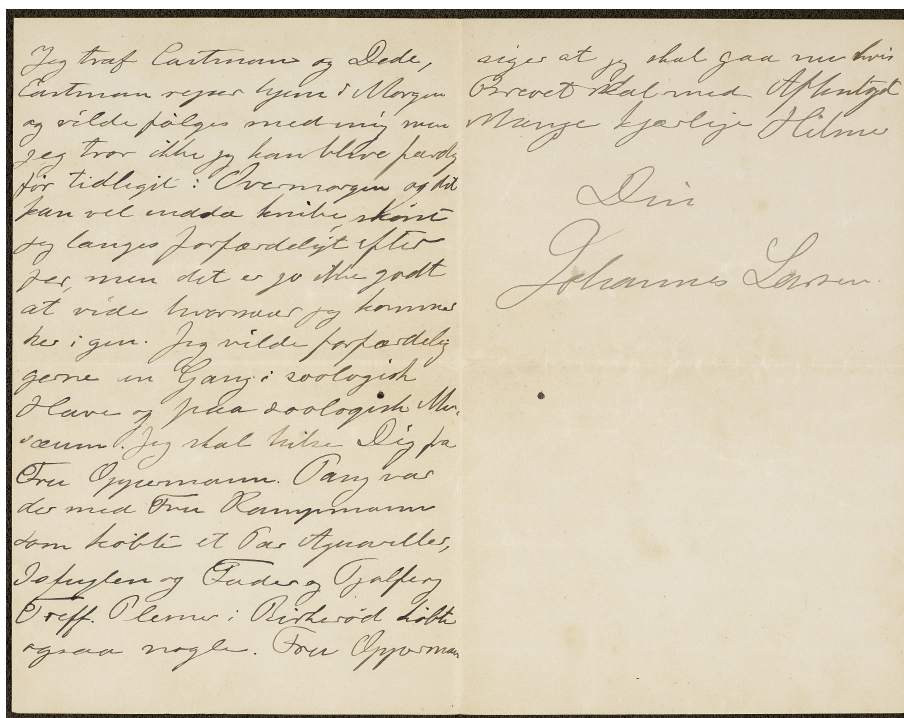 Jeg traf Eastman og Dede,
Eastman rejser hjem i Morgen
og vilde følges med mig men
jeg tror ikke jeg kan blive færdig
før tidligst i Overmorgen og det
kan vel endda knibe, skønt
jeg længes forfærdeligt efter
Jer, men det er jo ikke godt
at vide hvornaar jeg kommer
her igen. Jeg vilde forfærdelig
gerne en Gang i zoologisk
Have og paa zoologisk Mu-
sæum. Jeg skal hilse Dig fra
Fru Oppermann. Pang var
der med Fru Kampmann
som købte et Par Aqvareller,
Isfuglen og Fader og Tjalfe og
Treff. Plemer i Birkerød købte
ogsaa nogle. Fru Opperman
siger at jeg skal gaa nu hvis
Brevet skal med Aftentoget
Mange kjærlige Hilsner
Din
Johannes Larsen.